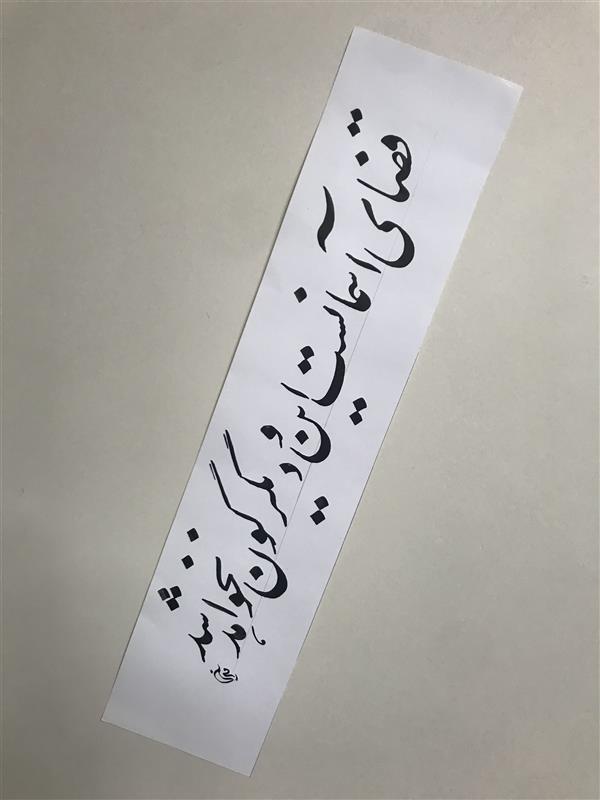 قضای آسمانست این و دیگرگون نخواهد شد